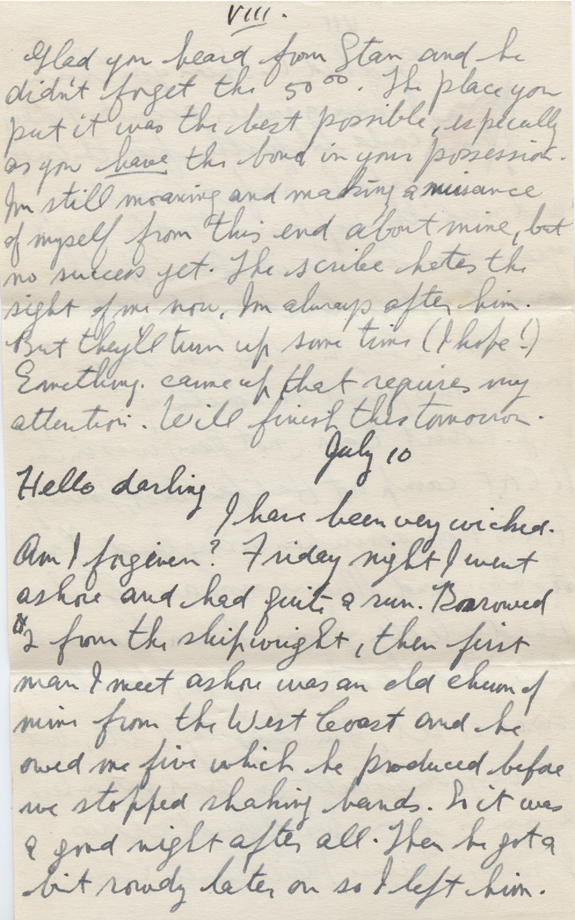 VIII.
Glad you heard from Stan and he
didn't forget the 50 00. The place you
put it was the best possible, especially
as you have the bond in your possession.
Im still moaning and making a nuisance
of myself from this end about mine, but
no success yet. The scribe hates the
sight of me now, Im always after him.
But they'll turn up some time (I hope!)
Something came up that requires my
attention. Will finish this tomorrow.
July 10
Hello darling
I have been very wicked.
Am I forgiven? Friday night I went
ashore and had quite a run. Borrowed
$2 from the shipwright, then first
man I meet ashore was an old chum of
mine from the West Coast and he
owed me five which he produced before
we stopped shaking hands. So it was
a good night after all. Then he got a
bit rowdy later on so I left him.